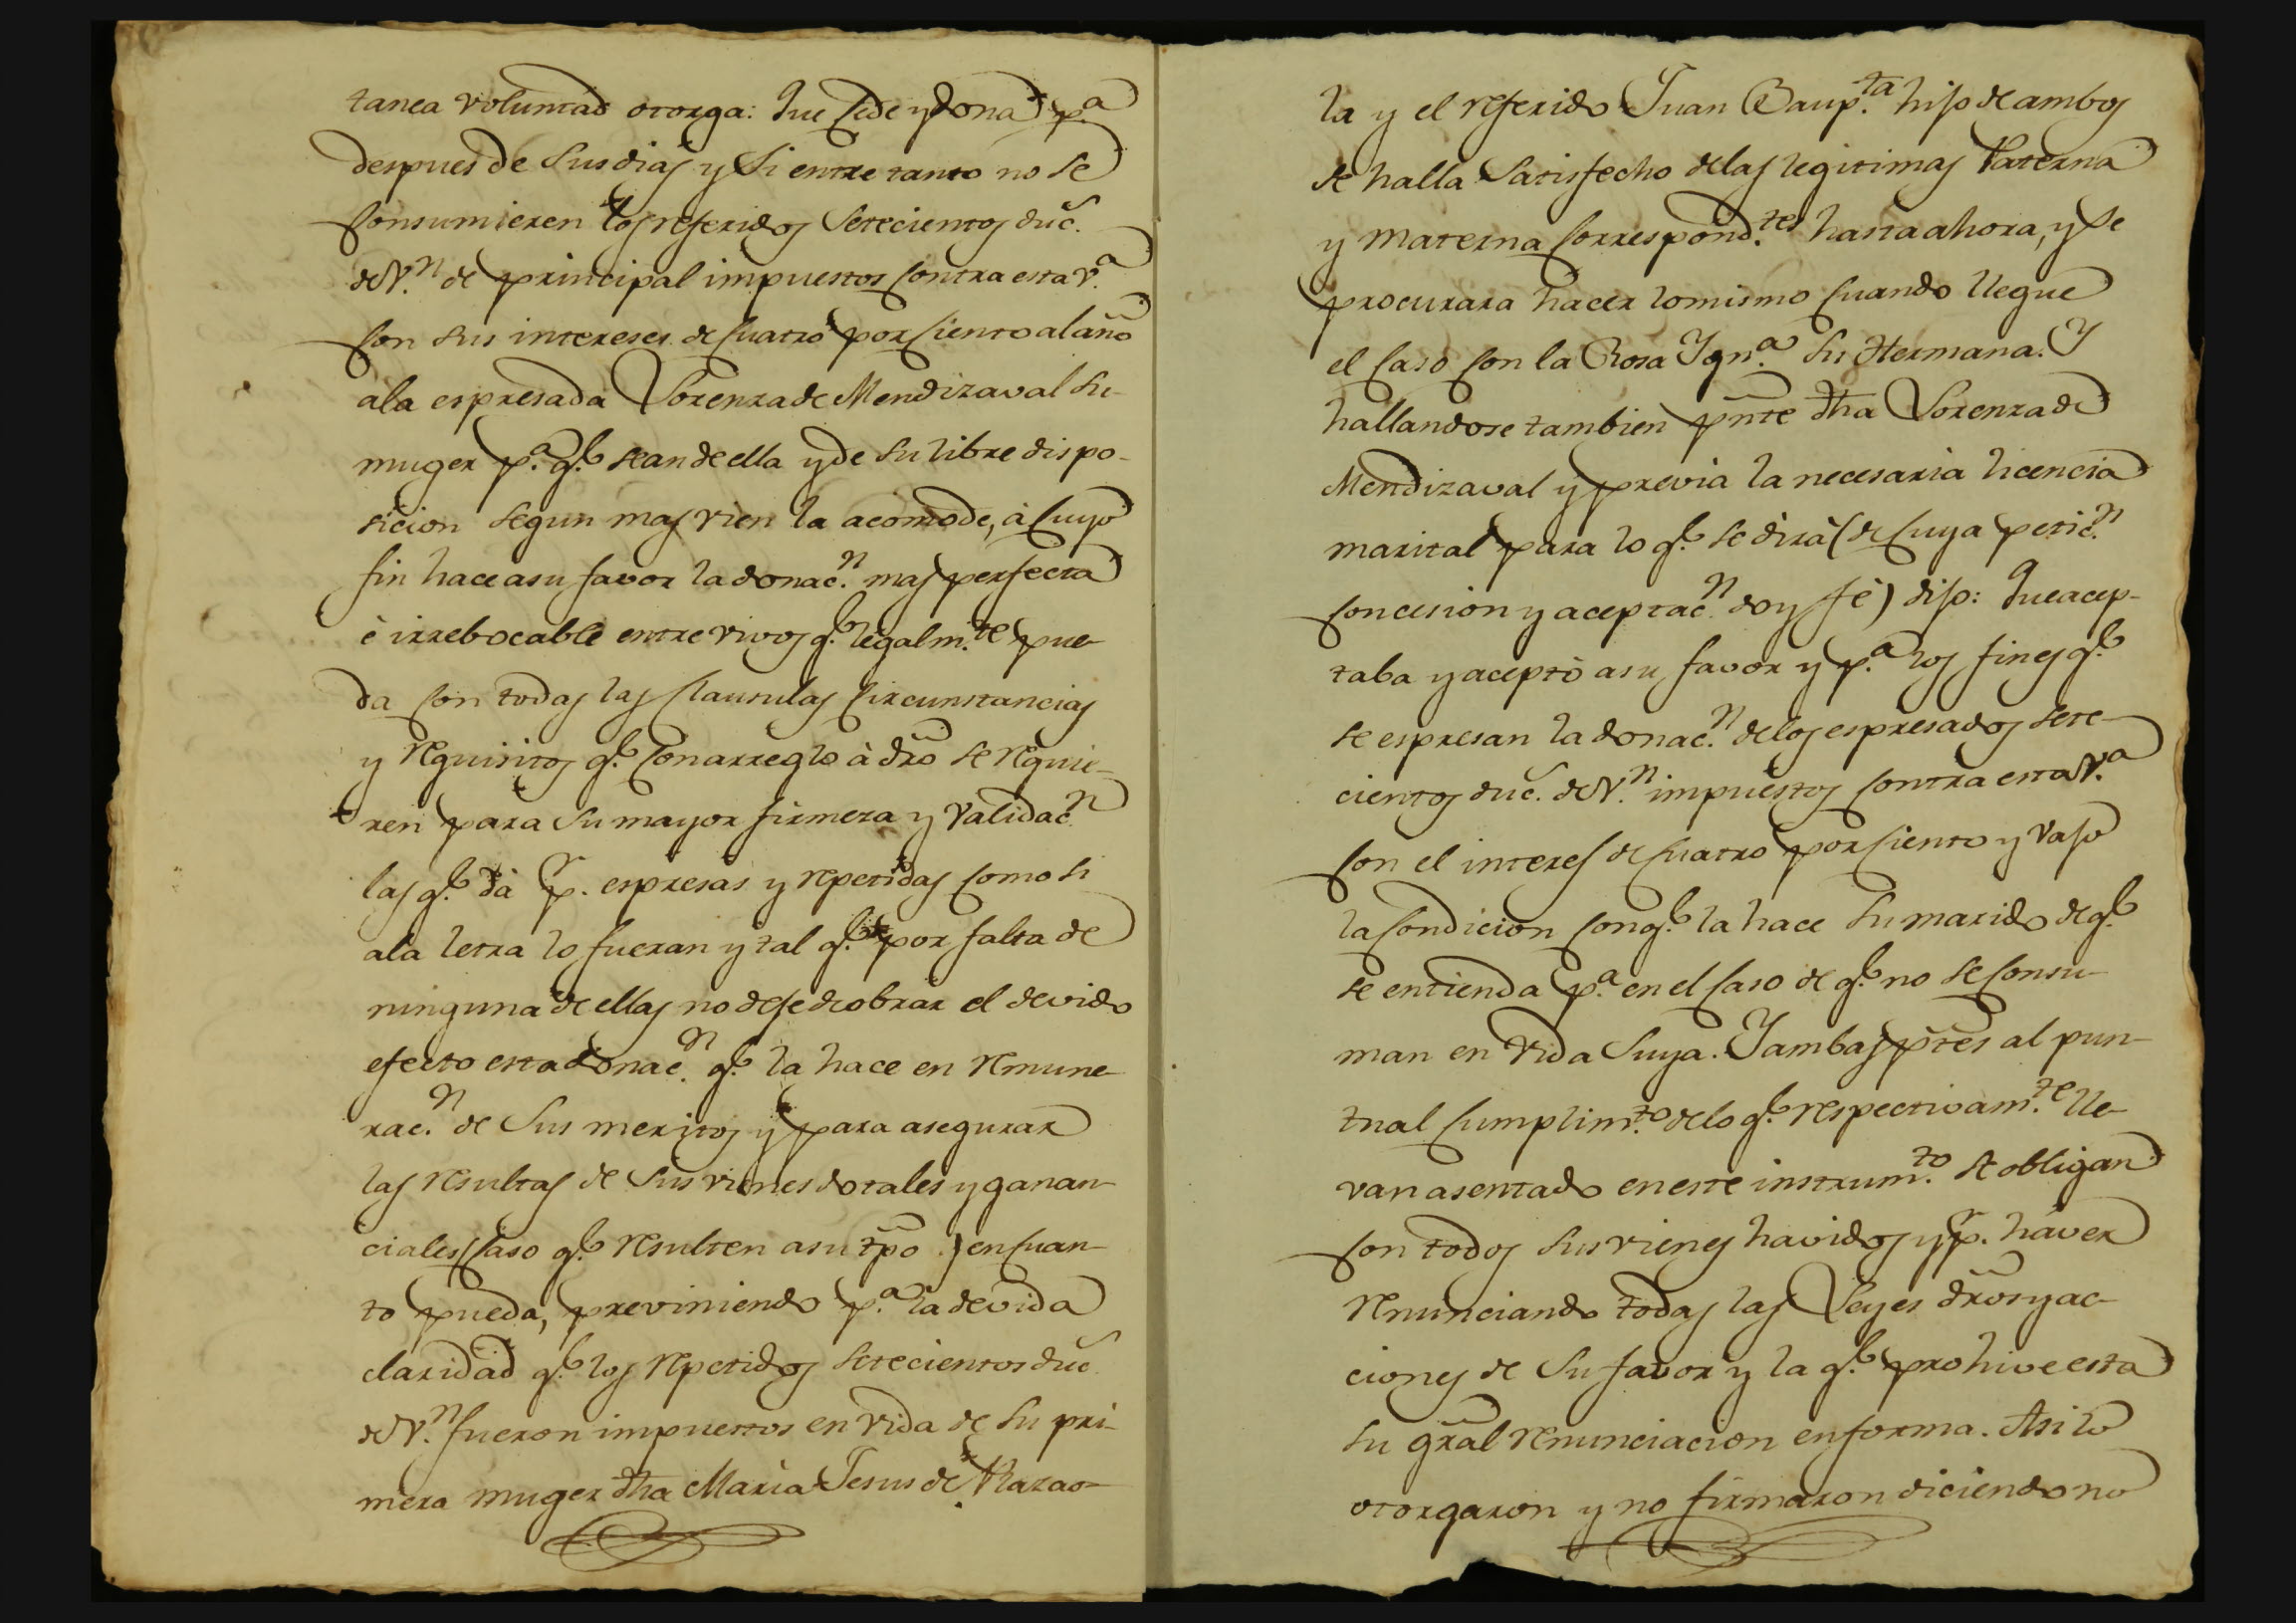 tanea voluntad otorga: Que cede y dona p.ª
despues de sus dias y si entre tanto no se
consumieren los referidos setecientos duc.
de V.n de principal impuestos contra esta V.ª
con sus intereses de cuatro por ciento al año
ala espresada Lorenza de Mendizaval su
muger p.ª q.e sean de ella y de su libre dispo-
sicion segun mas vien la acomode, à cuyo
fin hace asu favor la donac.n mas perfecta
è irrebocable entre vivos q.e legalm.te pue-
da con todas las clausulas circunstancias
y requisitos q.e con arreglo à dro se requie-
ren para su mayor firmeza y validac.n
las q.e dà p.r espresas y repetidas como si
ala letra lo fueran y tal q.e por falta de
ninguna de ellas no deje de obrar el devido
efecto esta donac.n q.e la hace en remune-
rac.n de sus meritos y para asegurar
las resultas de sus vienes dotales y ganan-
ciales (caso q.e resulten asu tpo.) en cuan-
to pueda, previniendo p.ª la devida
claridad q.e los repetidos setecientos duc.
de V.n fueron impuestos en vida de su pri-
mera muger dha Maria Jesus de Arazao-
la y el referido Juan Baup.ta hijo de ambos
se halla satisfecho delas legitimas Paterna
y Materna correspond.tes hasta ahora, y se
procurara hacer lo mismo cuando llegue
el caso con la Rosa Ygn.ª su Hermana. Y
hallandose tambien pnte dha Lorenza de
Mendizaval y previa la necesaria licencia
marital para lo q.e se dirà (de cuya petic.n
concesion y aceptac.n doy fè) dijo: Que acep-
taba y aceptò asu favor y p.ª los fines q.e
se espresan la donac.n delos espresados sete-
cientos duc. de V.n impuestos contra esta V.ª
con el interes de cuatro por ciento y vajo
la condicion con q.e la hace su marido de q.e
se entienda p.ª en el caso de q.e no se consu-
man en vida suya. Y ambas ptes al pun-
tual cumplim.to delo q.e respectivam.te lle-
van asentado en este instrum.to se obligan
con todos sus vienes havidos y p.r haver
renunciando todas las Leyes dros y ac-
ciones de su favor y la q.e prohive esta
su gral renunciacion en forma. Asi lo
otorgaron y no firmaron diciendo no